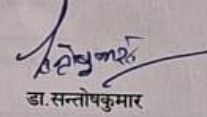 डा.सन्तोषकुमार